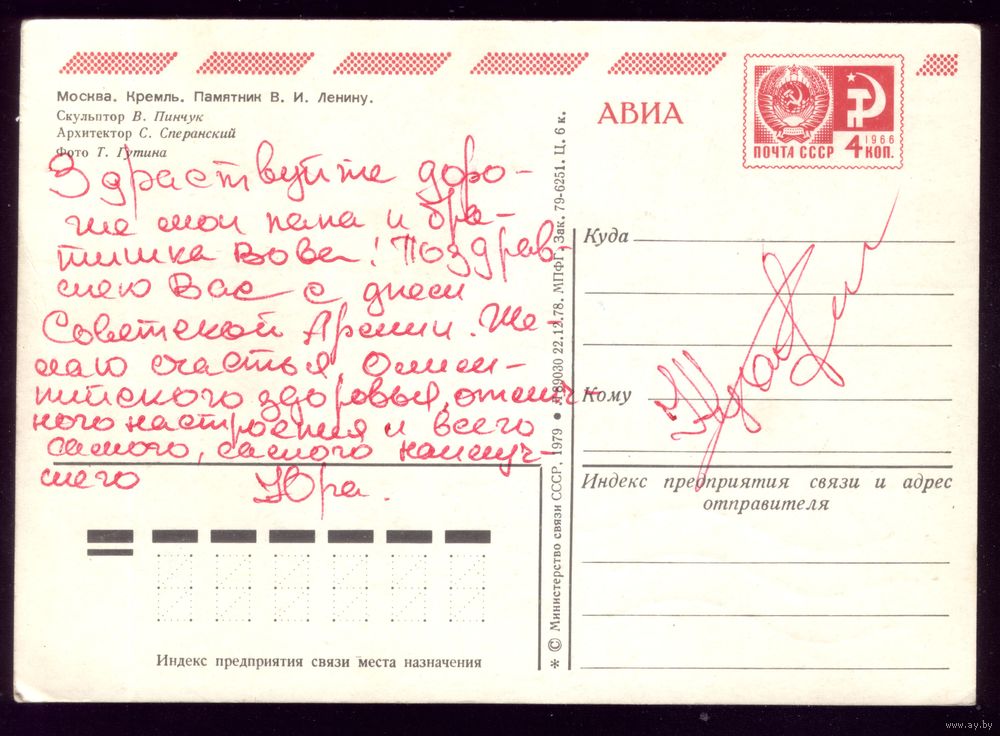 Москва. Кремль. Памятник В. И. Ленину.
Скульптор В. Пинчук
Архитектор С. Сперанский
Фото Т. Гутина
Здраствуйте доро-
гие мои папа и бра-
тишка Вова! Поздрав-
ляю Вас с днем
Советской Армии. Же-
лаю счастья, олим-
пийского здоровья, отлич-
ного настроения и всего
самого, самого наилуч-
шего Юра.
Индекс предприятия связи места назначения
* © Министерство связи СССР, 1979 • А 89030 22.12.78. МПФГ. Зак. 79-6251. Ц. 6 к.
АВИА
ПОЧТА СССР
1966
4 КОП.
Куда
Кому
Индекс предприятия связи и адрес
отправителя
www.ay.by